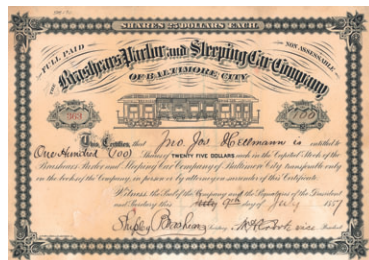 SHARES 25 DOLLARS EACH
FULL PAID
NON ASSESSABLE
THE
Brashears Parlor and Sleeping Car Company
OF BALTIMORE CITY.
369
100
This Certifies that Jno. Jos. Heelmann is entitled to
One Hundred (100) Shares of TWENTY FIVE DOLLARS each in the Capital Stock of the
Brashears Parlor and Sleeping Car Company of Baltimore City, transferable only
on the books of the Company, in person or by attorney on surrender of this Certificate.
Witness the Seal of the Company and the Signatures of the President
and Secretary this day of July 1887
Shipley Brashears Secretary vice President